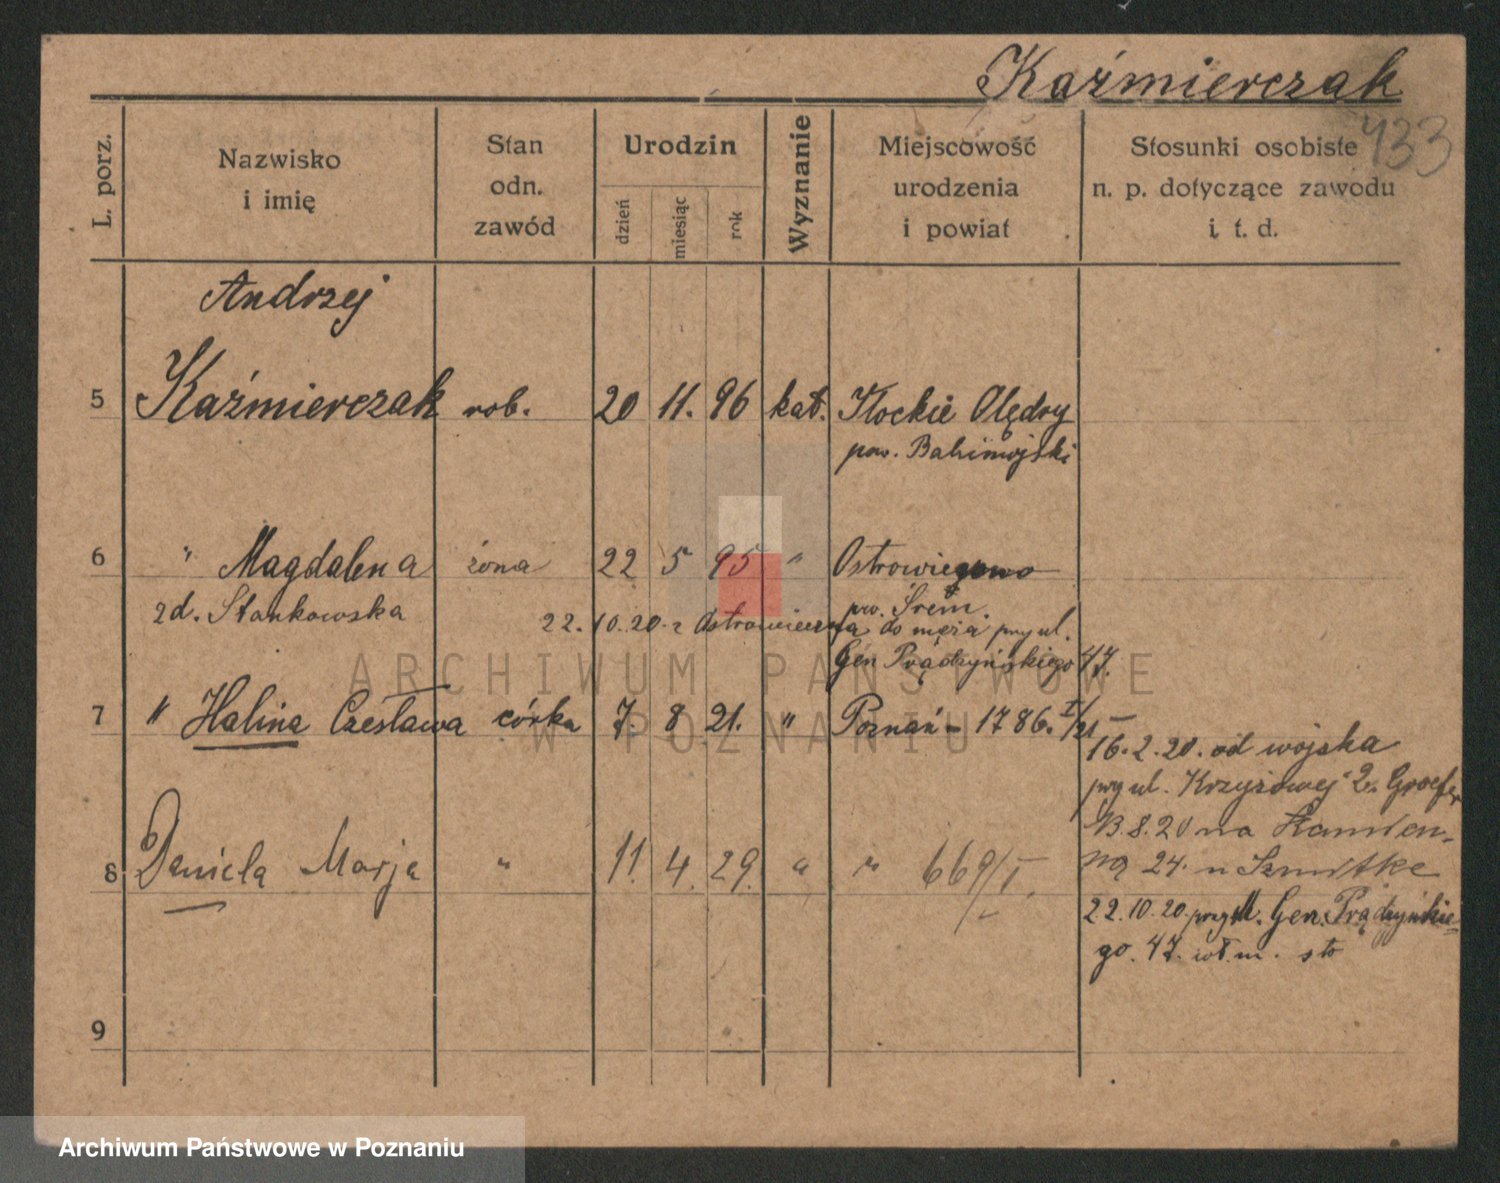 Kaźmierczak
433
L. porz.
Nazwisko
i imię
Stan
odn.
zawód
Urodzin
dzień
miesiąc
rok
Wyznanie
Miejscowość
urodzenia
i powiat
Stosunki osobiste
n. p. dotyczące zawodu
i t. d.
Andrzej
5 Kaźmierczak rob. 20 11. 96 kat. Olędry
pow.
6 " Magdalena żona 22 5 95 " Ostrowieczno
zd. Stankowska pow. Śrem
22.10.20 z Ostrowieczna do męża przy ul.
Gen Prądzyńskiego 47.
7 " Halina Czesława córka 7. 8 21. " Poznań - 1786. I/21
16.2.20. od wojska
przy ul. Krzyżowej 2.
8 Daniela Marja " 11. 4. 29. " " 669/I.
13.8.20 na Kamien-
ną 24. u
22.10.20. przy ul. Gen. Prądzyńskie-
go. 47. wł. m. sto
9
ARCHIWUM PAŃSTWOWE
W POZNANIU
Archiwum Państwowe w Poznaniu